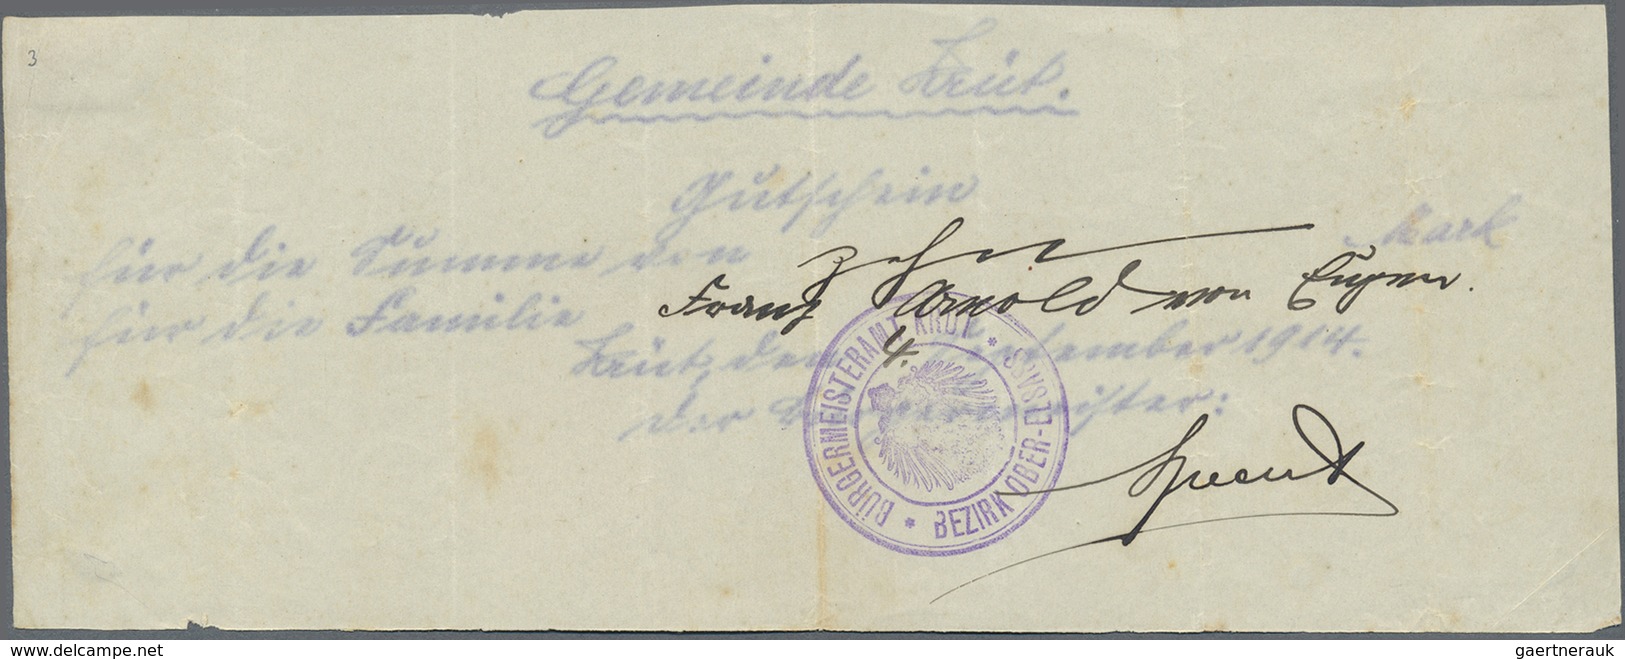 3
Gemeinde Krüt.
Gutschein
für die Summe von zehn Mark
für die Familie Franz Arnold von Eugen.
Krüt, den 4. September 1914.
der Bürgermeister:
BÜRGERMEISTERAMT KRÜT * BEZIRK OBER-ELSASS *
delcampe.net
gaertnerauk